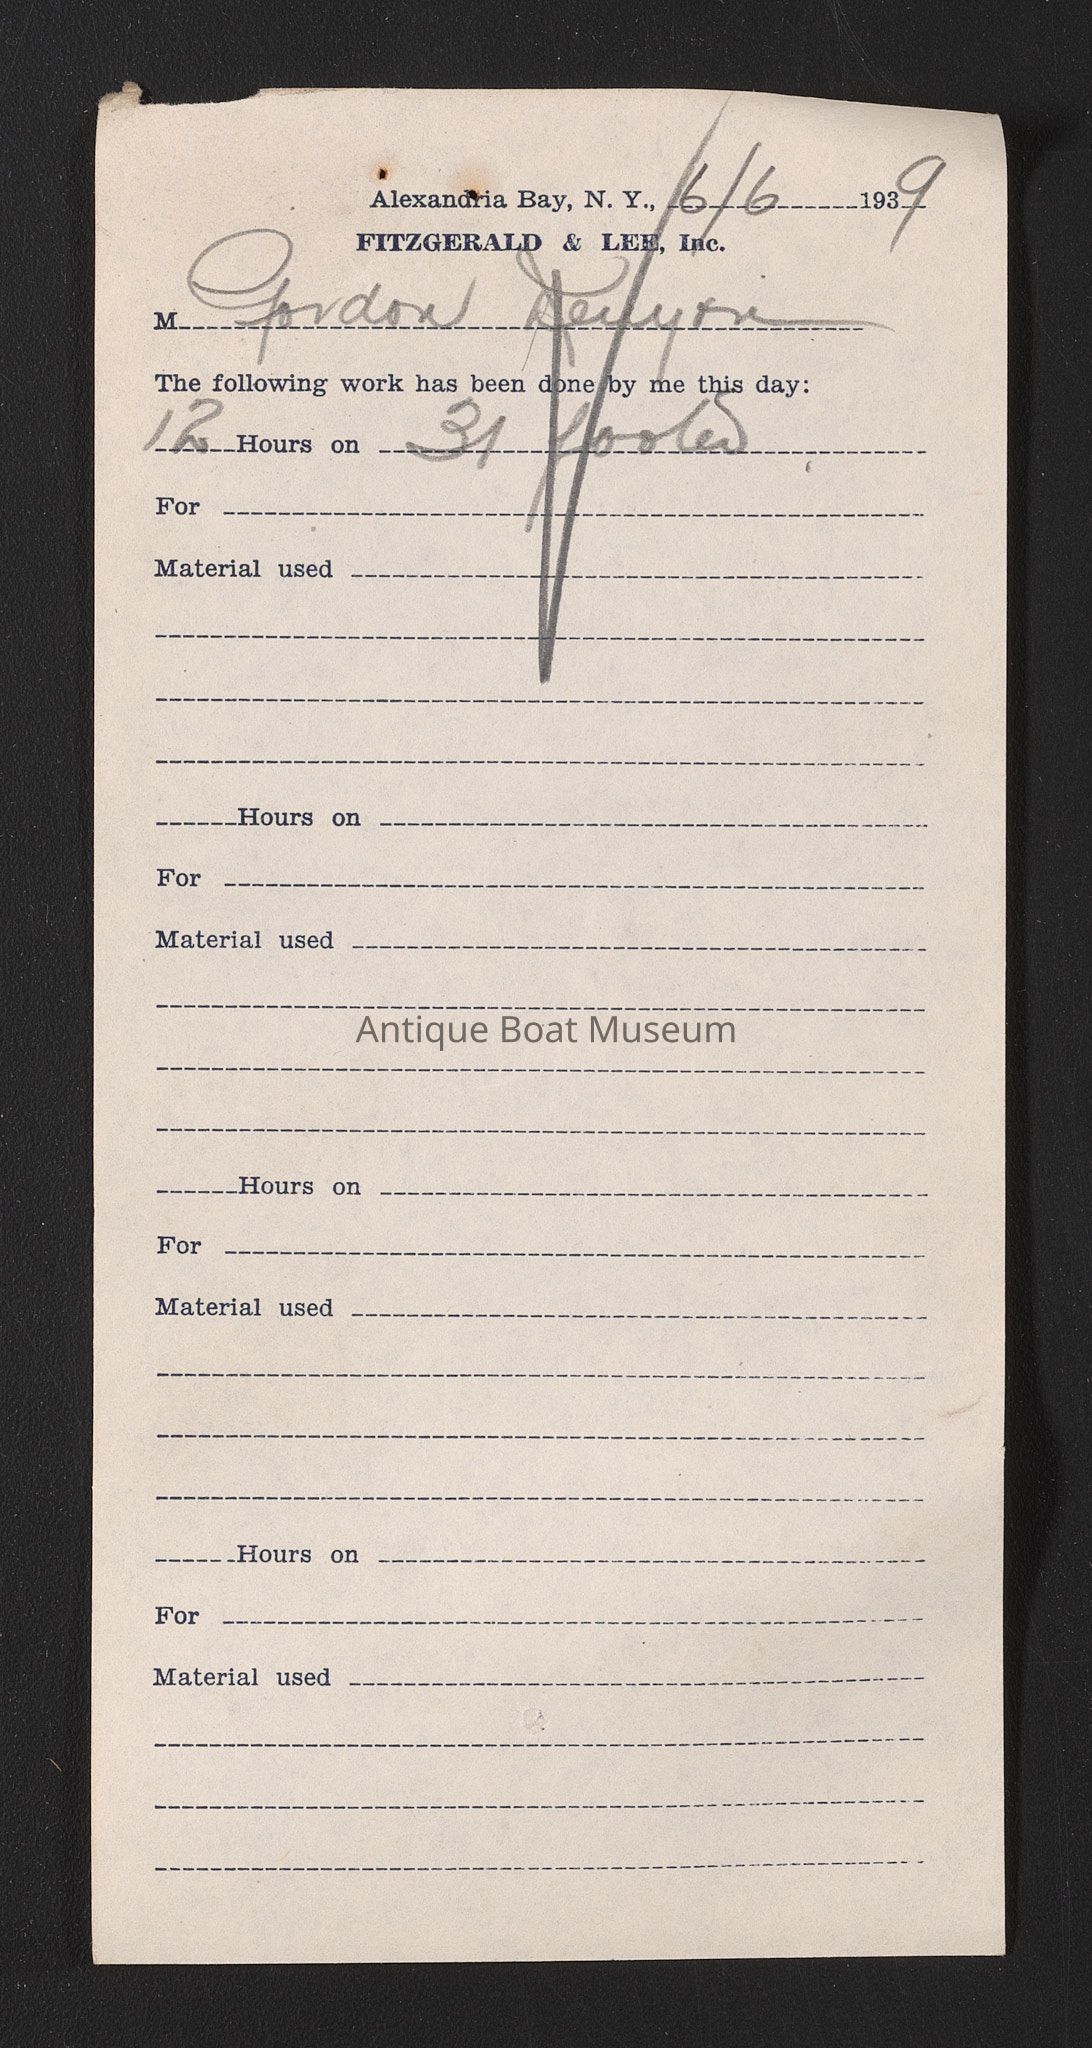 Alexandria Bay, N. Y., 6/6 1939
FITZGERALD & LEE, Inc.
M Gordon Kenyon
The following work has been done by me this day:
12 Hours on 31 footer
For
Material used
Hours on
For
Material used
Antique Boat Museum
Hours on
For
Material used
Hours on
For
Material used